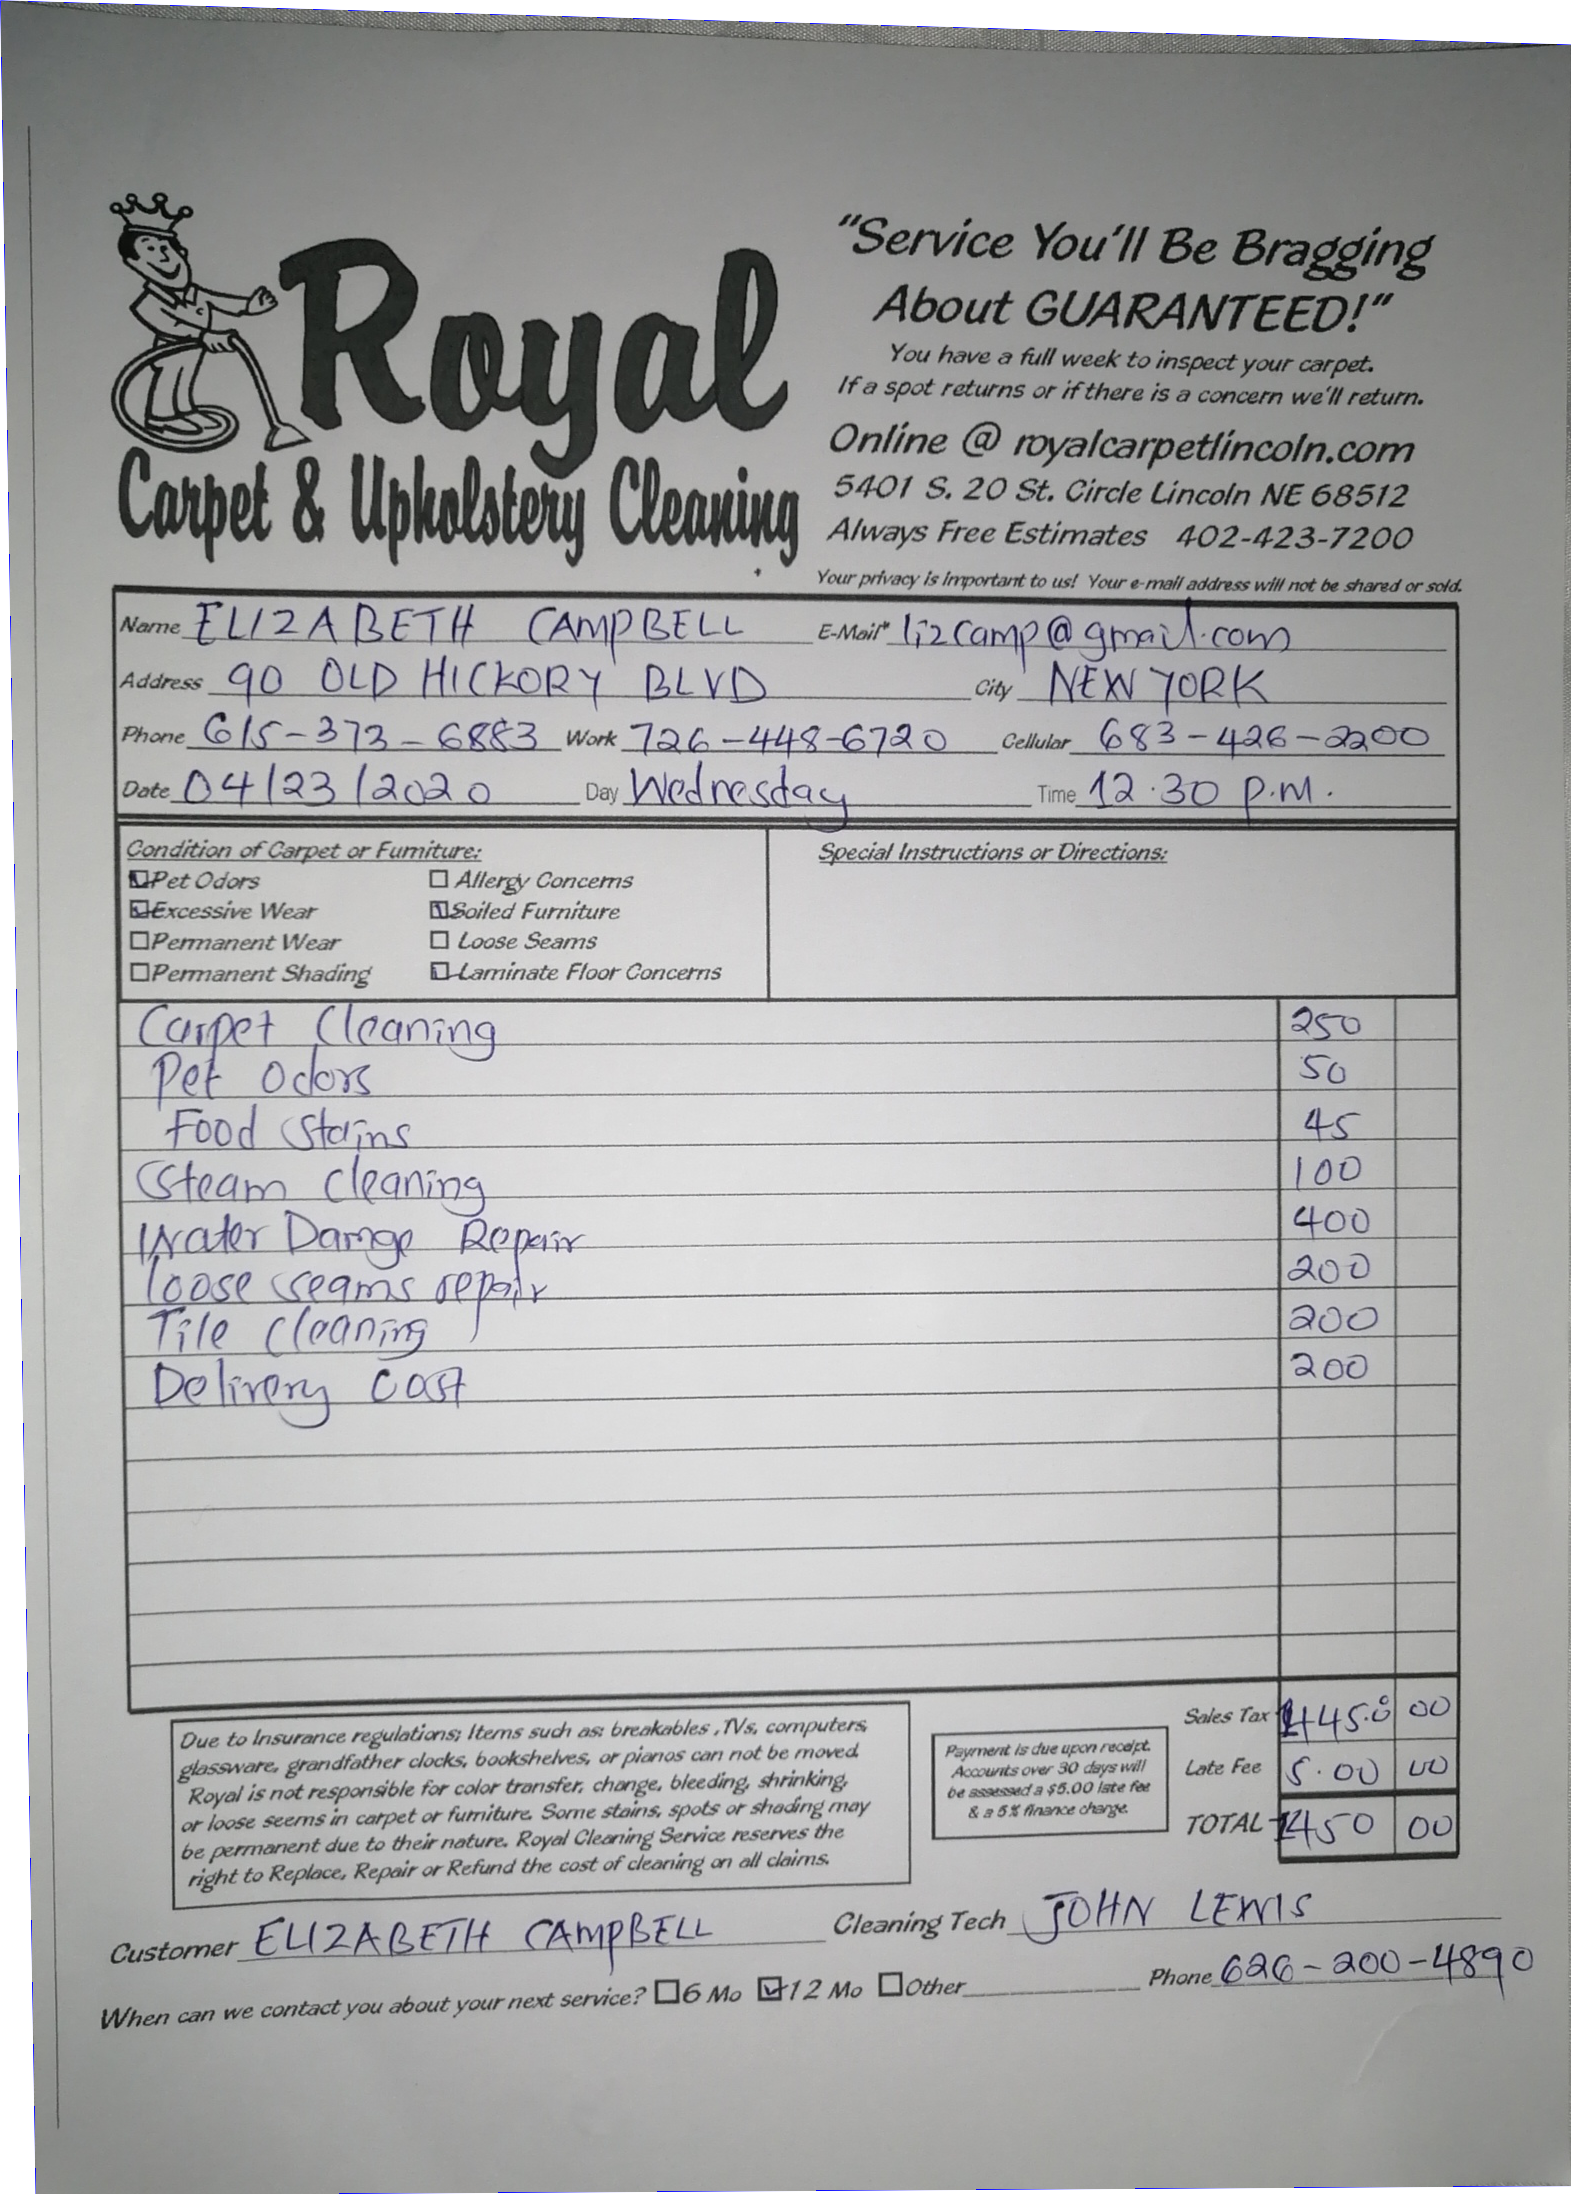 Royal
Carpet & Upholstery Cleaning
"Service You'll Be Bragging
About GUARANTEED!"
You have a full week to inspect your carpet.
If a spot returns or if there is a concern we'll return.
Online @ royalcarpetlincoln.com
5401 S. 20 St. Circle Lincoln NE 68512
Always Free Estimates 402-423-7200
Your privacy is important to us! Your e-mail address will not be shared or sold.
Name ELIZABETH CAMPBELL E-Mail* lizcamp@gmail.com
Address 90 OLD HICKORY BLVD City NEW YORK
Phone 615-373-6883 Work 726-448-6720 Cellular 683-426-2200
Date 04/23/2020 Day Wednesday Time 12.30 P.M.
Condition of Carpet or Furniture: Special Instructions or Directions:
Pet Odors Allergy Concerns
Excessive Wear Soiled Furniture
Permanent Wear Loose Seams
Permanent Shading Laminate Floor Concerns
Carpet Cleaning 250
Pet Odors 50
Food Stains 45
Steam Cleaning 100
Water Damge Repair 400
loose seams repair 200
Tile Cleaning 200
Delivery Cost 200
Due to Insurance regulations; Items such as: breakables ,TVs, computers,
glassware, grandfather clocks, bookshelves, or pianos can not be moved.
Royal is not responsible for color transfer, change, bleeding, shrinking,
or loose seems in carpet or furniture. Some stains, spots or shading may
be permanent due to their nature. Royal Cleaning Service reserves the
right to Replace, Repair or Refund the cost of cleaning on all claims.
Payment is due upon receipt.
Accounts over 30 days will
be assessed a $5.00 late fee
& a 5% finance charge.
Sales Tax 1445.0 00
Late Fee 5.00 00
TOTAL 1450 00
Customer ELIZABETH CAMPBELL Cleaning Tech JOHN LEWIS
When can we contact you about your next service? 6 Mo 12 Mo Other Phone 626-200-4890